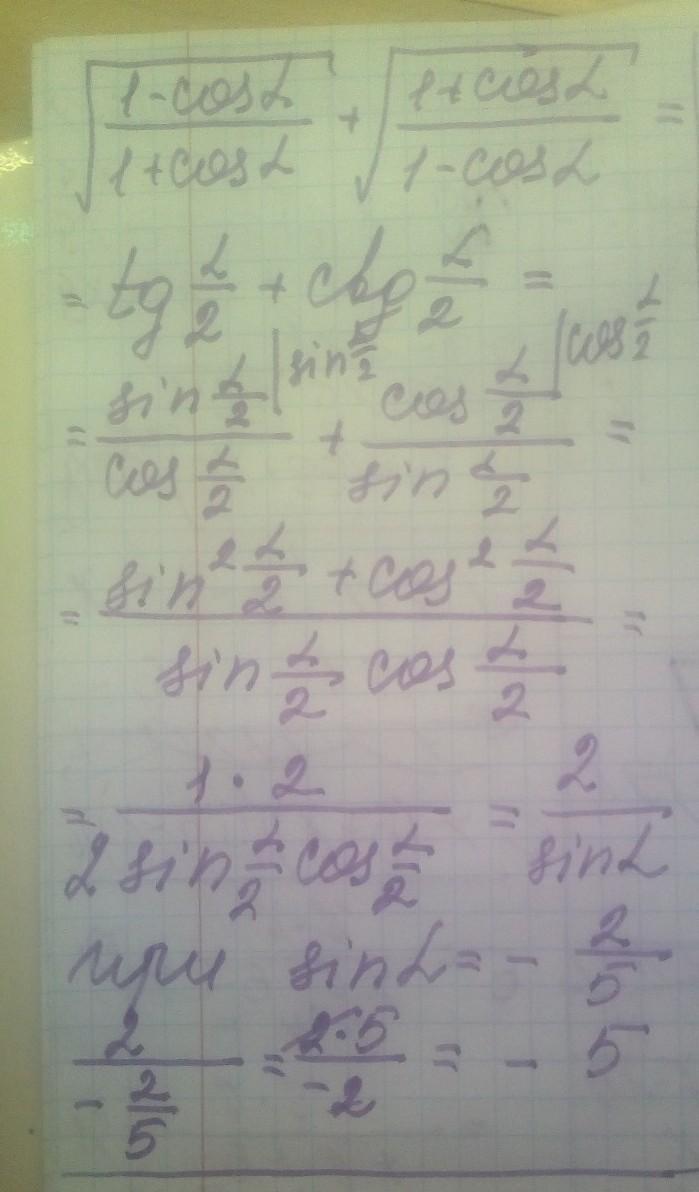 √((1-cosα)/(1+cosα)) + √((1+cosα)/(1-cosα)) =
= tg α/2 + ctg α/2 =
= (sin α/2 |sin α/2)/(cos α/2) + (cos α/2 |cos α/2)/(sin α/2) =
= (sin² α/2 + cos² α/2)/(sin α/2 cos α/2) =
= (1·2)/(2 sin α/2 cos α/2) = 2/(sinα)
при sinα = - 2/5
2/(- 2/5) = (2·5)/(-2) = - 5